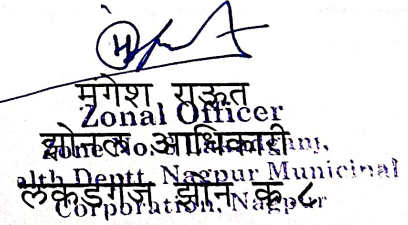 मंगेश राऊत
Zonal Officer
झोनल अधिकारी
Zone No. 8
alth Deptt, Nagpur Municipal
लकडगंज झोन क्र. ८
Corporation, Nagpur